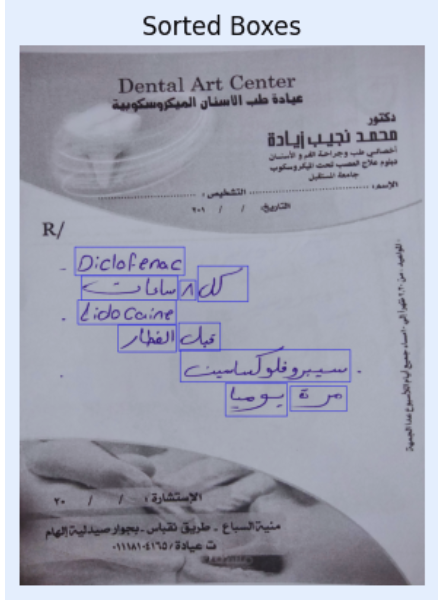 Sorted Boxes
Dental Art Center
عيادة طب الأسنان الميكروسكوبية
دكتور
محمد نجيب زيادة
أخصائي طب وجراحة الفم والأسنان
دبلوم علاج العصب تحت الميكروسكوب
جامعة المستقبل
الإسم: التشخيص:
التاريخ: / / ٢٠١
R/
- Diclofenac
كل ٨ ساعات
. Lidocaine
قبل الفطار
. سيبروفلوكساسين
مرة يوميا
الإستشارة: / / ٢٠
منية السباع - طريق نقباس - بجوار صيدلية إلهام
ت عيادة / ٠١١١٨١٠٤١٦٥